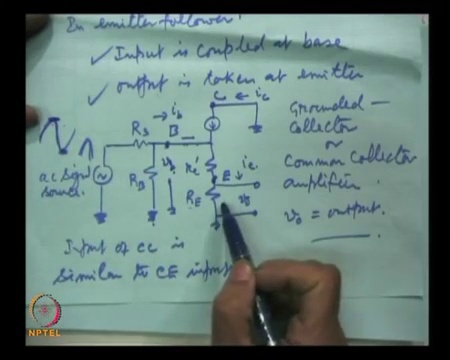 In emitter follower
✓ Input is coupled at base
✓ output is taken at emitter
C ← ic
→ ib
B
Rs
RB
re'
E ie
RE
vo
ac signal
source.
Grounded-
Collector
or
Common Collector
amplifier.
vo = output.
Input of CC is
similar to CE input
NPTEL